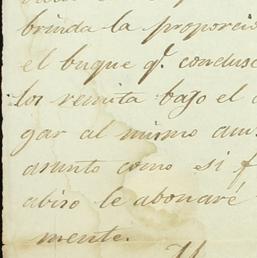 brinda la proporcio
el buque q.e condusc
los remita bajo el
gar al mismo am
asunto como si f
abiso le abonaré
mente.